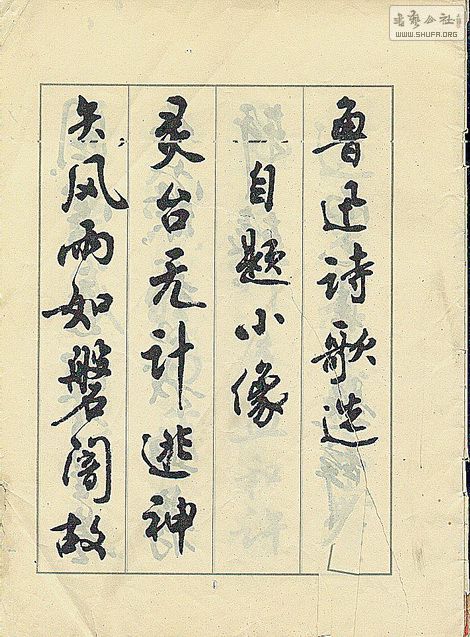 鲁迅诗歌选
自题小像
灵台无计逃神
矢风雨如磐闇故
书艺公社
WWW.SHUFA.ORG